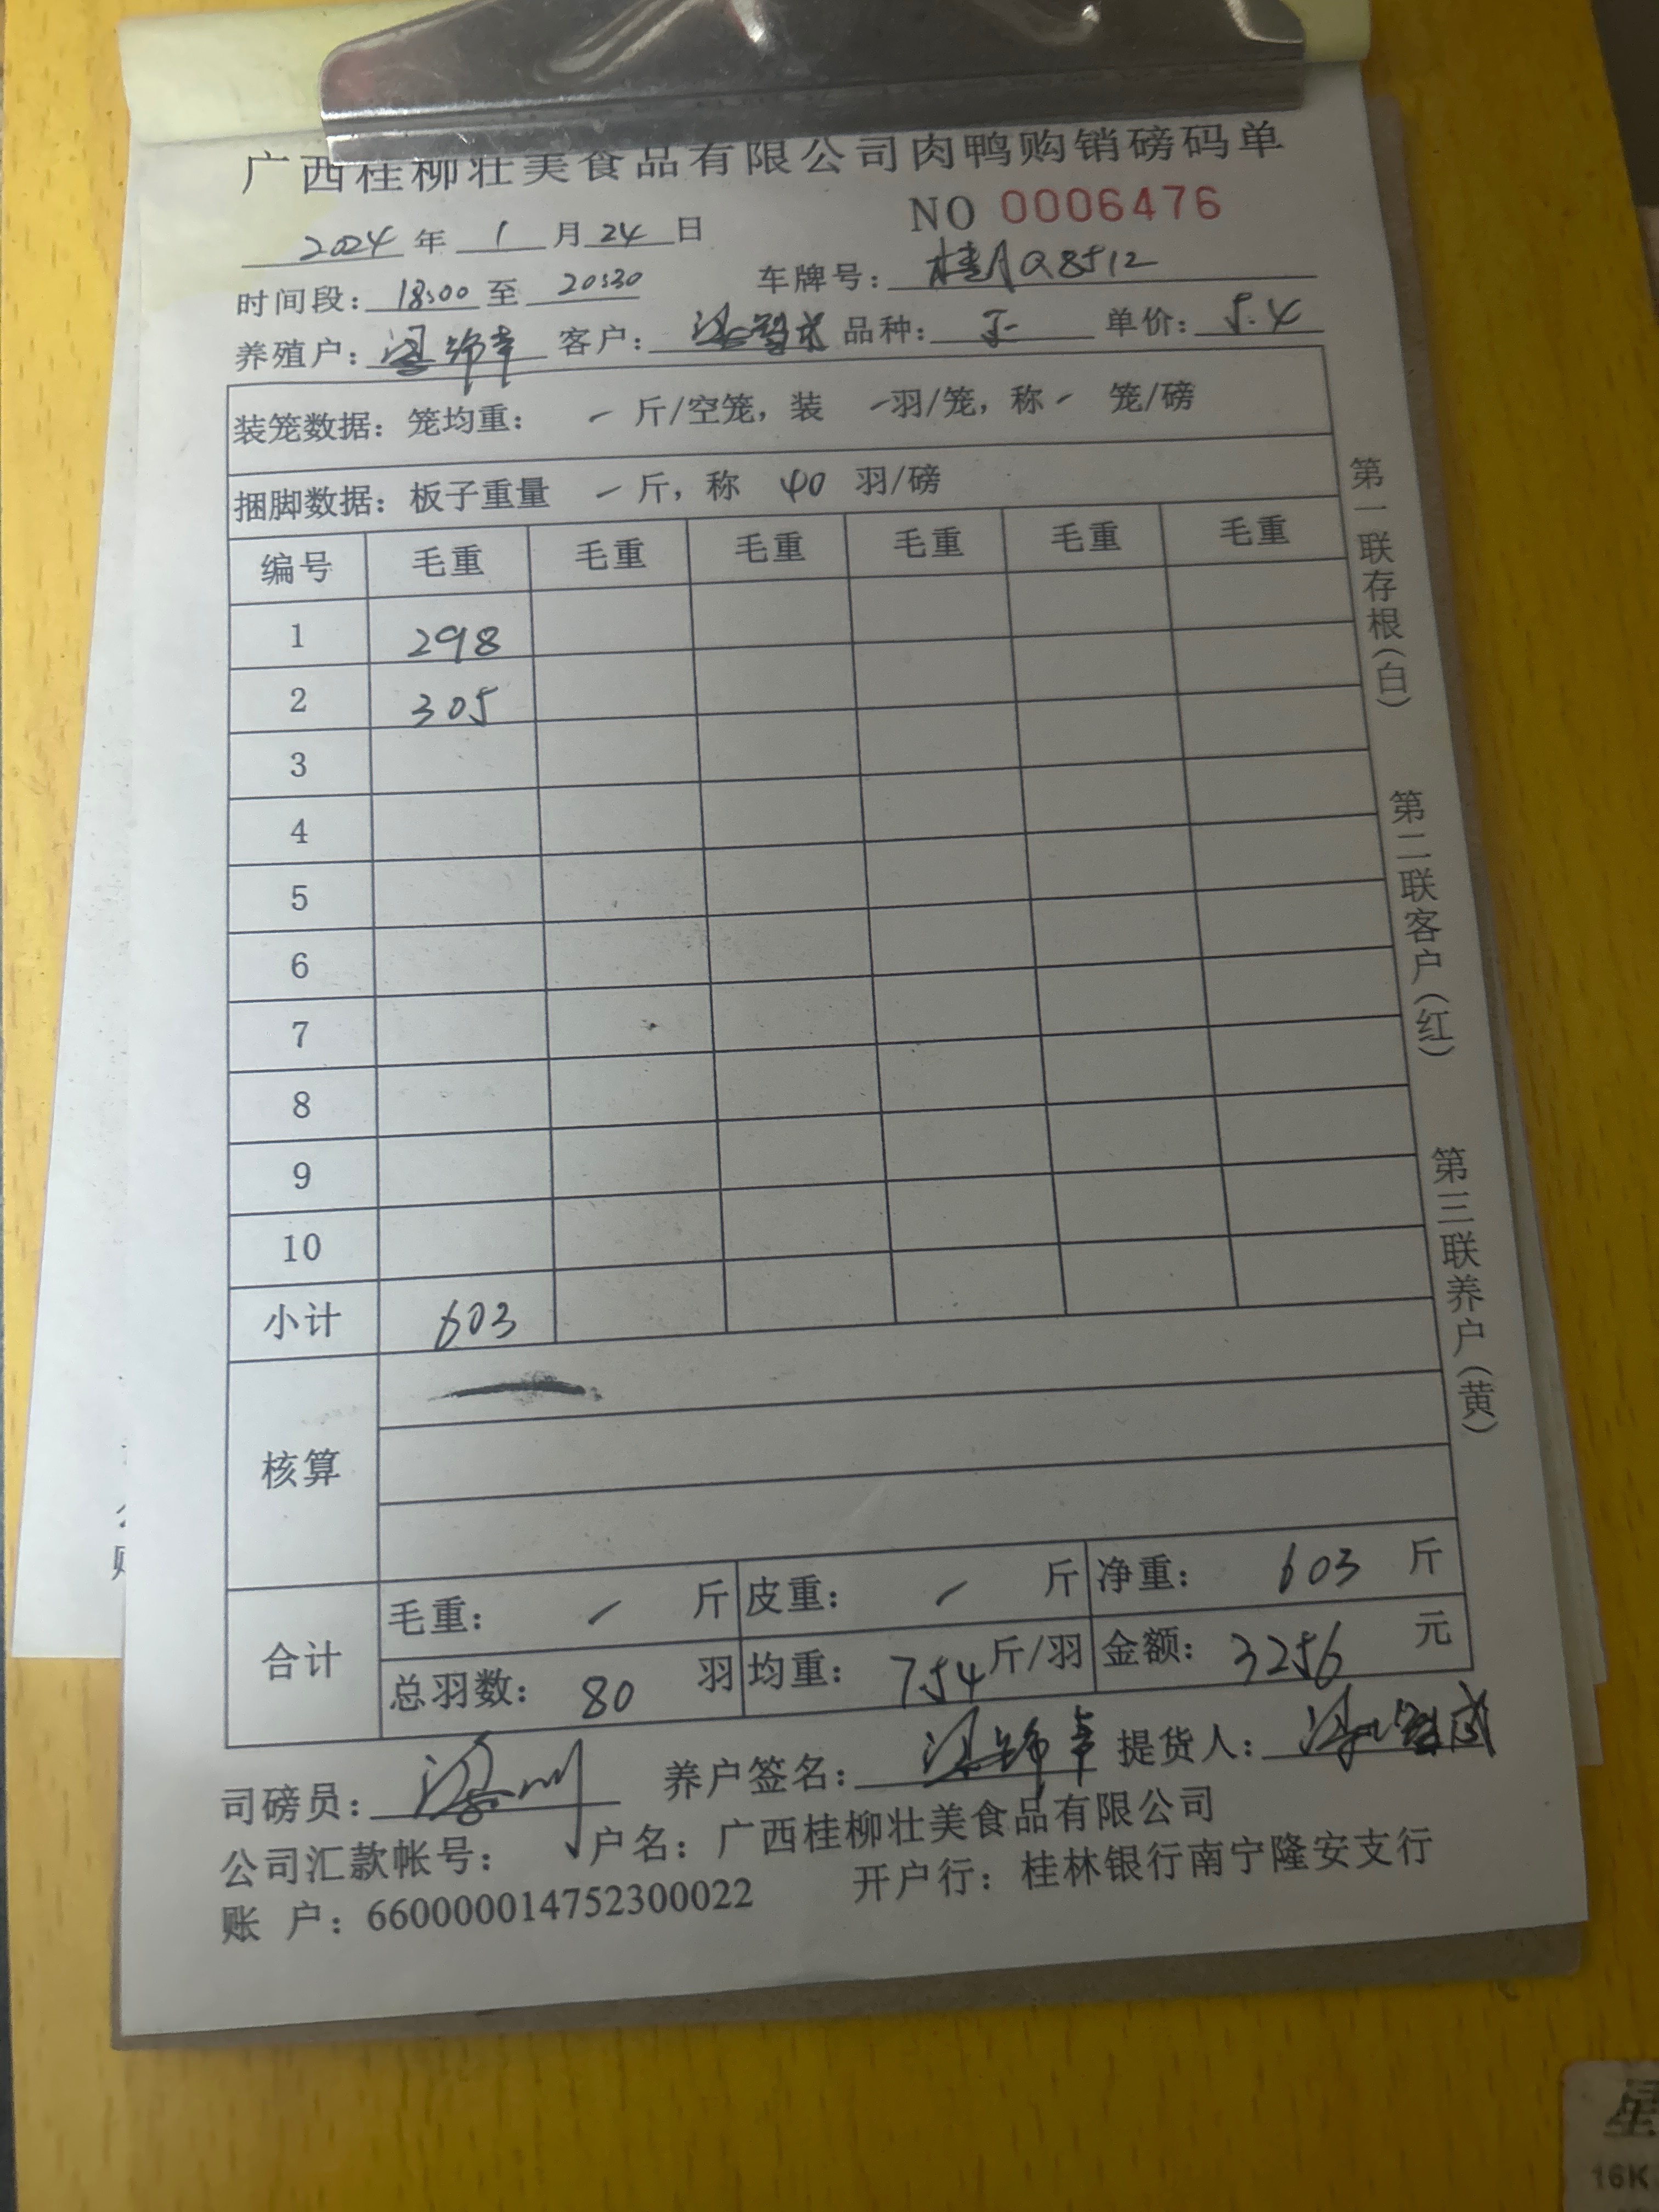 广西桂柳壮美食品有限公司肉鸭购销磅码单
NO 0006476
2024 年 1 月 24 日
时间段: 18:00 至 20:30 车牌号: 桂AQ8512
养殖户: 梁锦幸 客户: 品种: 单价: 5.4
装笼数据: 笼均重: - 斤/空笼, 装 - 羽/笼, 称 - 笼/磅
捆脚数据: 板子重量 - 斤, 称 40 羽/磅
编号 毛重 毛重 毛重 毛重 毛重 毛重
1 298
2 305
3
4
5
6
7
8
9
10
小计 603
核算
合计 毛重: - 斤 皮重: - 斤 净重: 603 斤
总羽数: 80 羽 均重: 7.54 斤/羽 金额: 3256 元
司磅员: 养户签名: 梁锦幸 提货人:
公司汇款帐号: 户名: 广西桂柳壮美食品有限公司
账 户: 660000014752300022 开户行: 桂林银行南宁隆安支行
第一联存根(白)
第二联客户(红)
第三联养户(黄)
星
16K